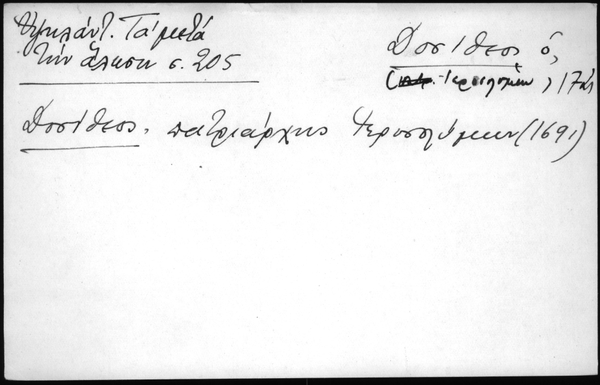 Ὑψηλάντ. Τά μετά
τήν ἅλωση σ. 205
Δοσίθεος ὁ,
Ἱεροσολύμων, 17
Δοσίθεος, πατριάρχης Ἱεροσολύμων (1691)